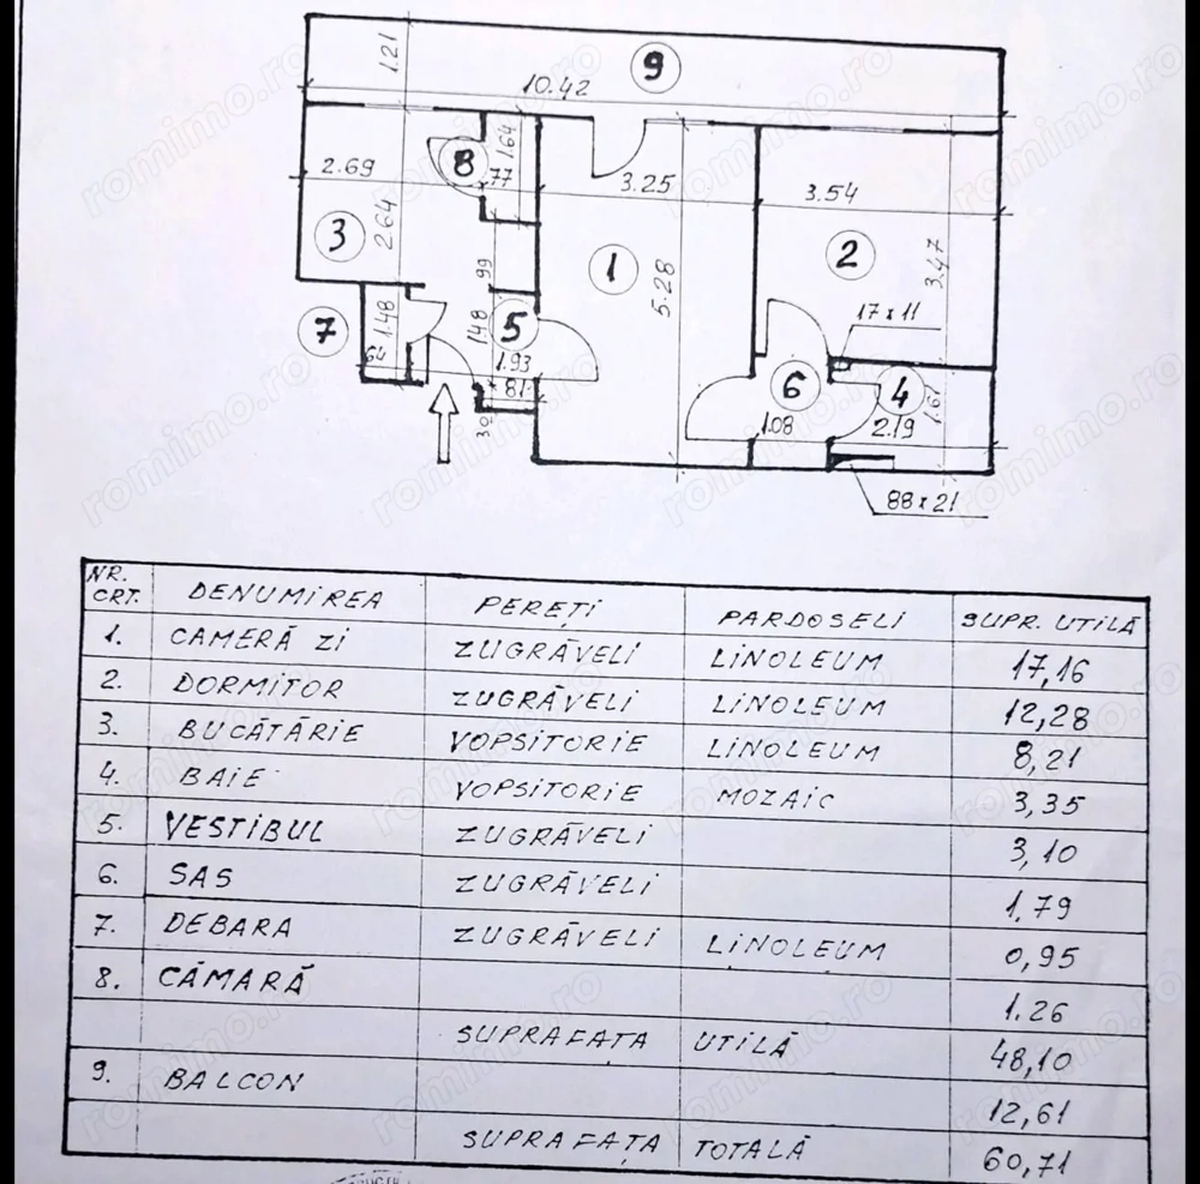 1.21
9
10.42
2.69
8
1.64
77
3.25
3.54
3
2.64
1
5.28
2
3.47
99
17 x 11
7
1.48
1.48
5
64
1.93
81
30
6
4
1.61
1.08
2.19
88 x 21
NR. CRT. DENUMIREA PEREȚI PARDOSELI SUPR. UTILĂ
1. CAMERĂ ZI ZUGRĂVELI LINOLEUM 17,16
2. DORMITOR ZUGRĂVELI LINOLEUM 12,28
3. BUCĂTĂRIE VOPSITORIE LINOLEUM 8,21
4. BAIE VOPSITORIE MOZAIC 3,35
5. VESTIBUL ZUGRĂVELI 3,10
6. SAS ZUGRĂVELI 1,79
7. DEBARA ZUGRĂVELI LINOLEUM 0,95
8. CĂMARĂ 1.26
SUPRAFAȚA UTILĂ 48,10
9. BALCON 12,61
SUPRAFAȚA TOTALĂ 60,71
romimo.ro